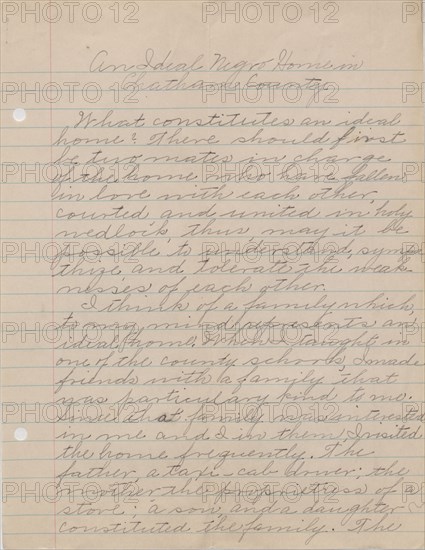 An Ideal Negro Home in
Chatham County.
What constitutes an ideal
home? There should first
be two mates in charge
of the home who have fallen
in love with each other,
courted and united in holy
wedlock, thus may it be
possible to understand, sympa
thize, and tolerate the weak-
nesses of each other.
I think of a family which,
to my mind represents an
ideal home. When I taught in
one of the county schools, I made
friends with a family that
was particulary kind to me.
Since that family was interested
in me and I in them I visited
the home frequently. The
father, a taxi-cab driver; the
mother the proprietress of a
store; a son, and a daughter
constituted the family. The